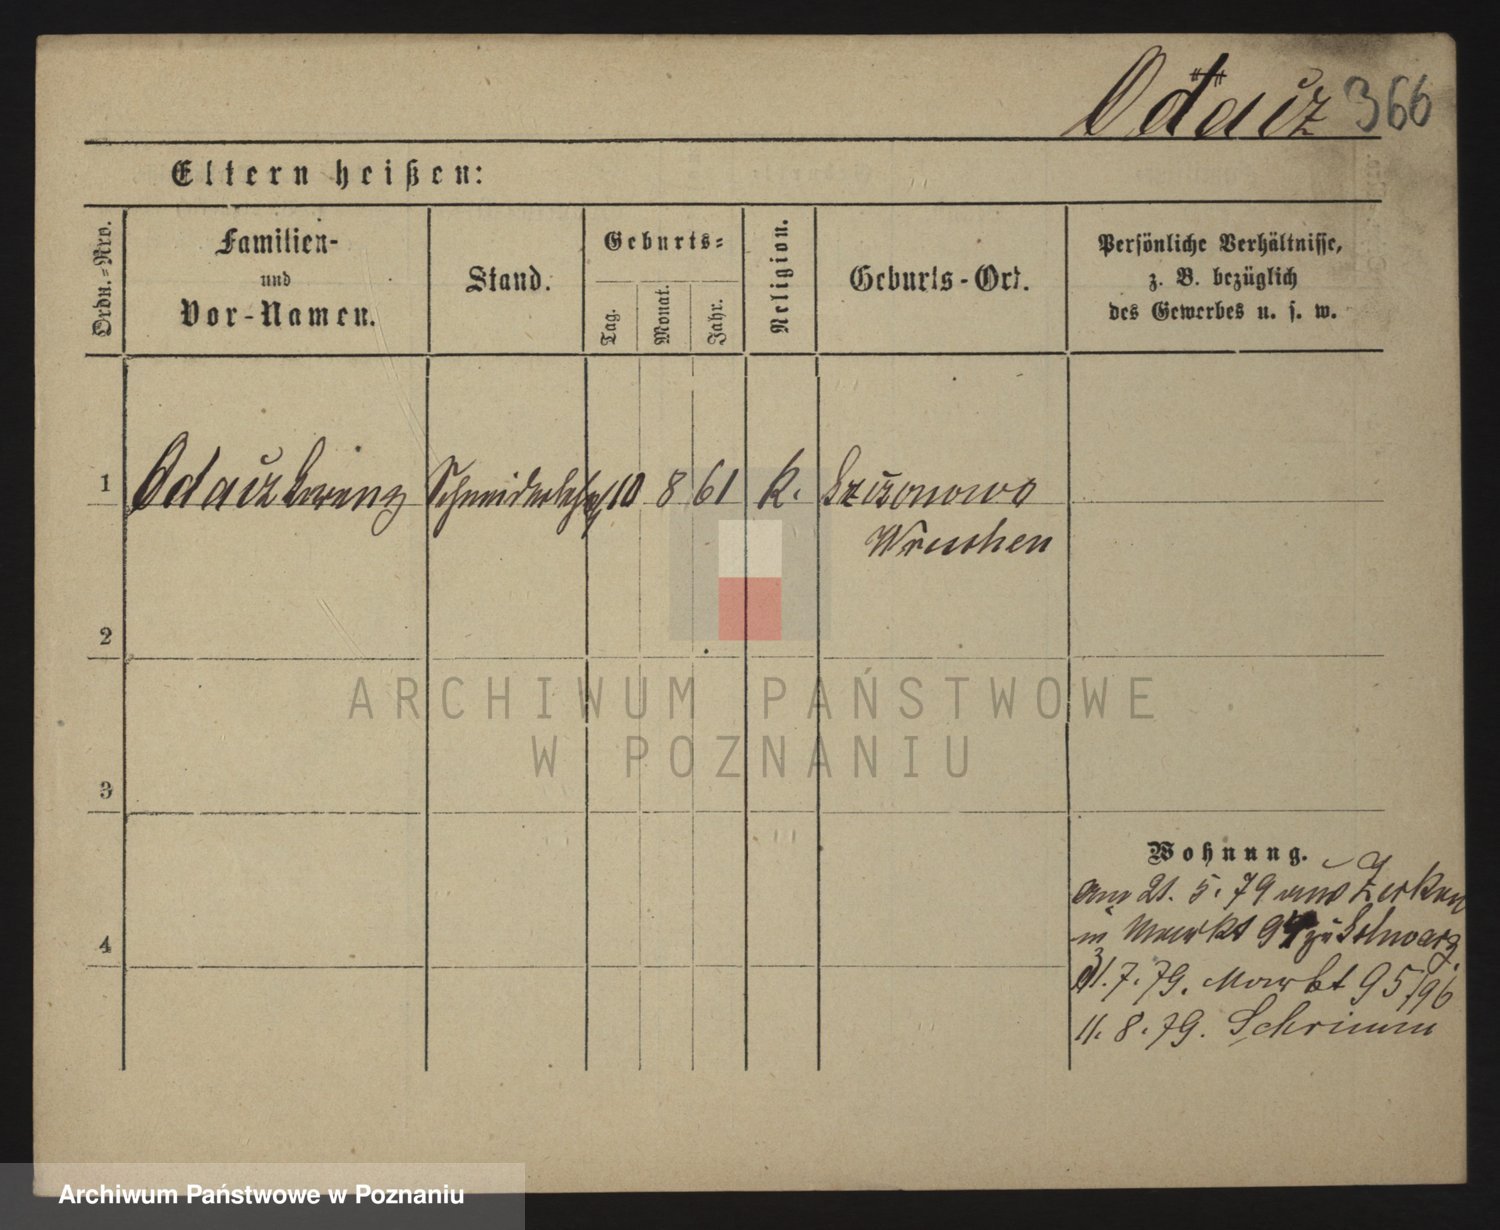 Odauz 366
Eltern heißen:
Ordn.-Nro.
Familien-
und
Vor-Namen.
Stand.
Geburts-
Tag.
Monat.
Jahr.
Religion.
Geburts-Ort.
Persönliche Verhältnisse,
z. B. bezüglich
des Gewerbes u. s. w.
1 Odauz 10 8 61 k.
Wreschen
2
3
4
Wohnung.
am 21. 5. 79 aus Zerkow
in Markt 94 zu Schwarz.
31. 7. 79. Markt 95/96
11. 8. 79. Schrimm
ARCHIWUM PAŃSTWOWE
W POZNANIU
Archiwum Państwowe w Poznaniu